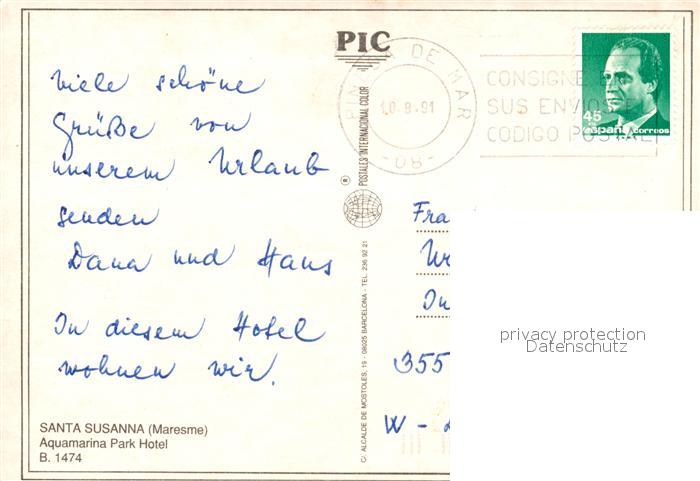 PIC
viele schöne
Grüße von
unserem Urlaub
senden
Dana und Hans
In diesem Hotel
wohnen wir.
SANTA SUSANNA (Maresme)
Aquamarina Park Hotel
B. 1474
POSTALES INTERNACIONAL COLOR
®
C/. ALCALDE DE MOSTOLES, 19 - 08025 BARCELONA - TEL. 236 92 21
DE MAR
10-8-91
-08-
CONSIGNE
SUS ENVIOS
CODIGO POSTAL
45
España Correos
Fra
In
355
W -
privacy protection
Datenschutz